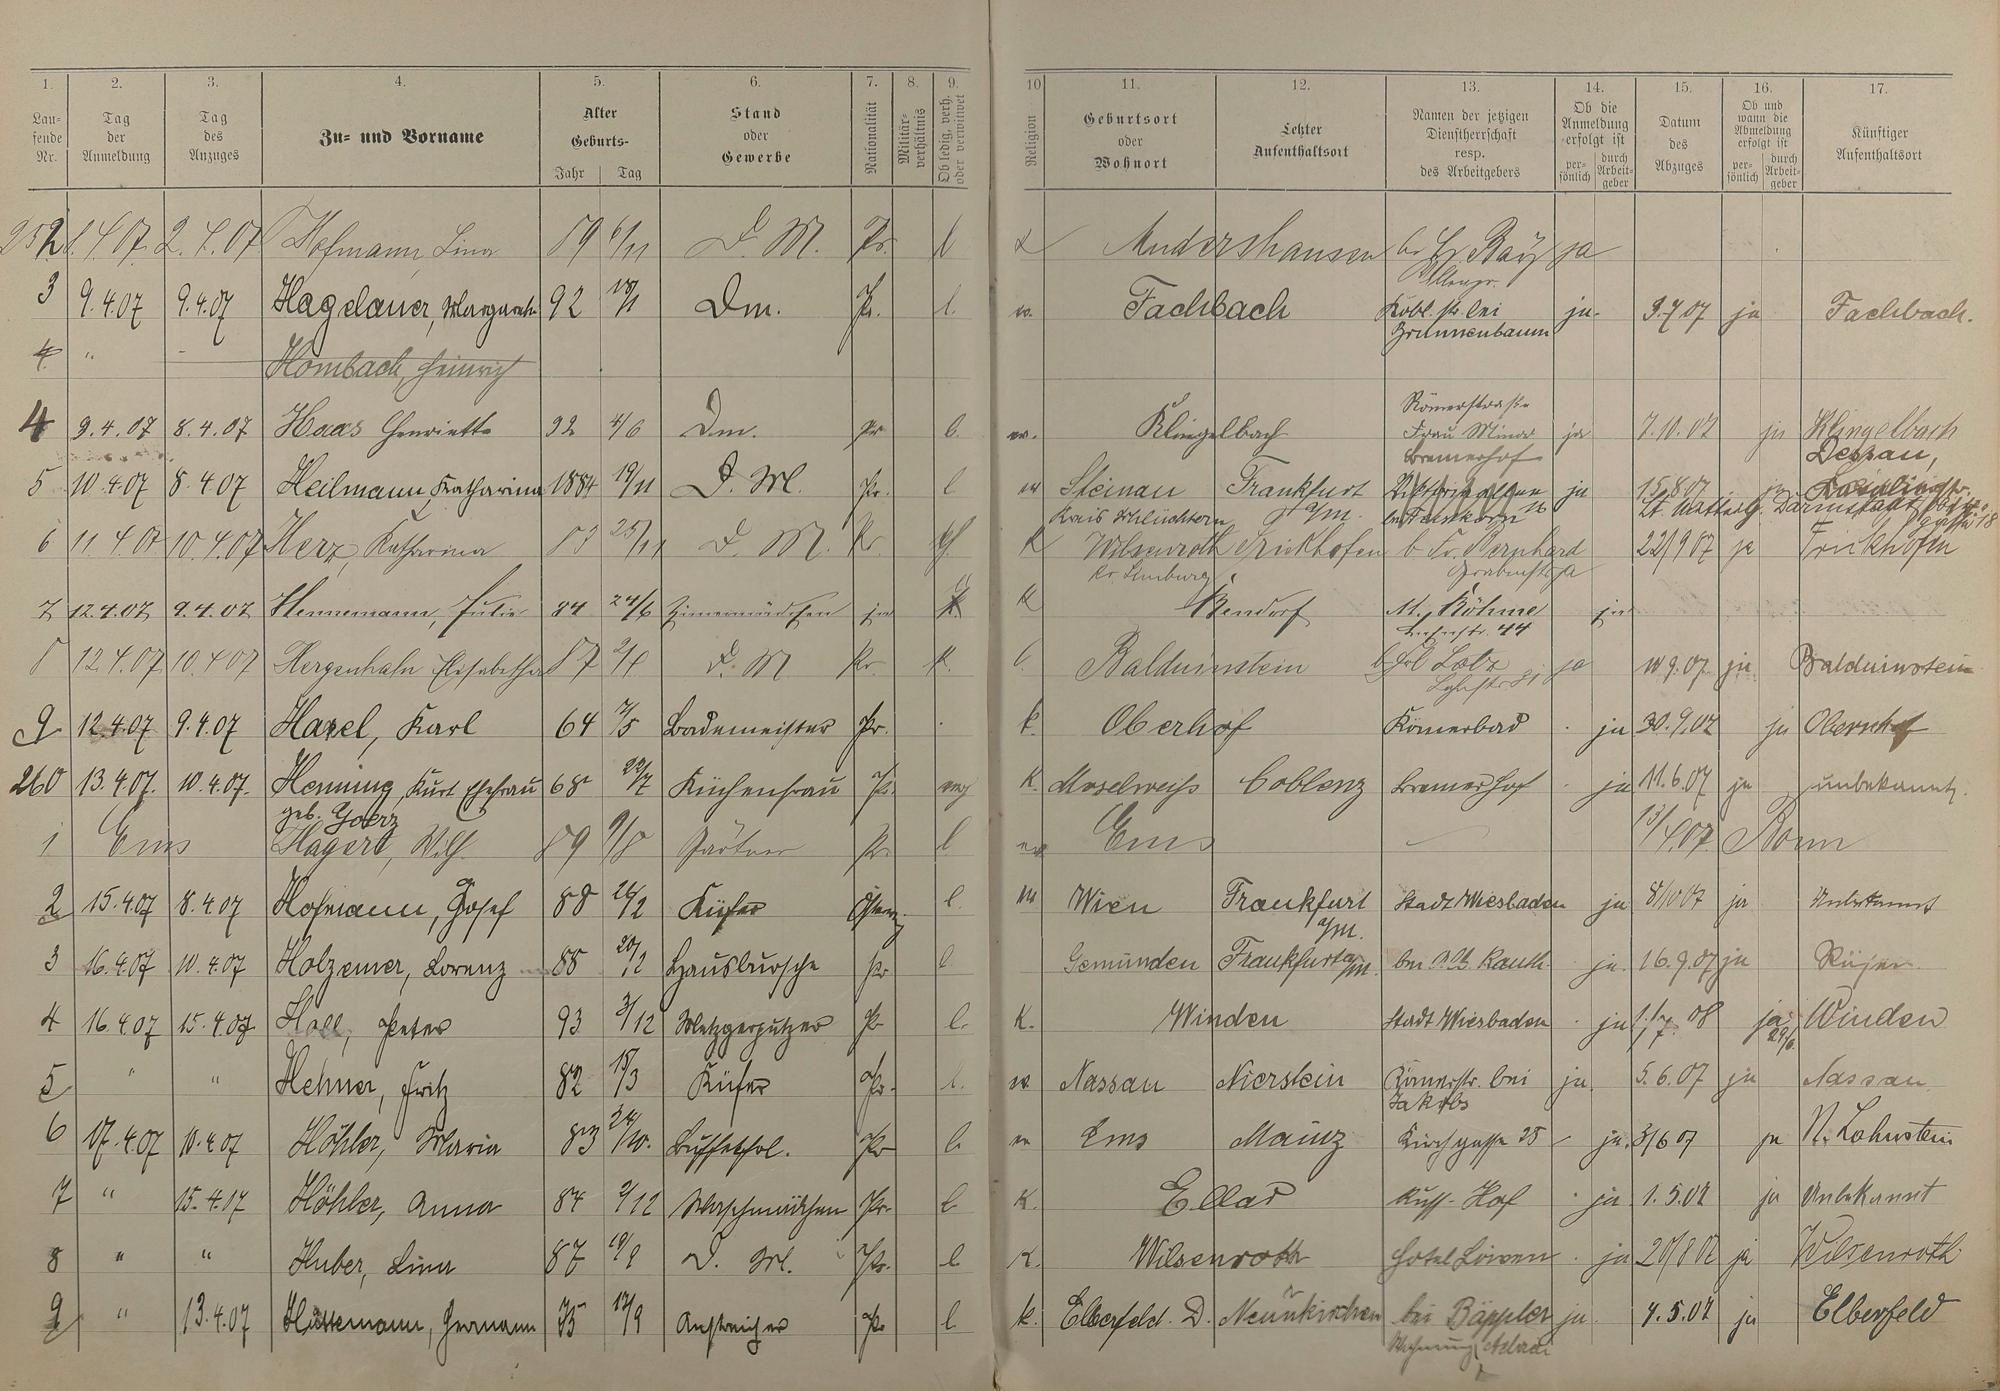 1. 2. 3. 4. 5. 6. 7. 8. 9. 10 11. 12. 13. 14. 15. 16. 17.
Lau-fende Nr. | Tag der Anmeldung | Tag des Anzuges | Zu- und Vorname | Alter Geburts- Jahr Tag | Stand oder Gewerbe | Nationalität | Militär-verhältnis | Ob ledig, verh. oder verwitwet | Religion | Geburtsort oder Wohnort | Letzter Aufenthaltsort | Namen der jetzigen Dienstherrschaft resp. des Arbeitgebers | Ob die Anmeldung erfolgt ist per-sönlich durch Arbeit-geber | Datum des Abzuges | Ob und wann die Abmeldung erfolgt ist per-sönlich durch Arbeit-geber | Künftiger Aufenthaltsort
252 1.4.07. 2.4.07 Hofmann, Lina 89 6/11 D. M. Pr. l ja
3 9.4.07 9.4.07 Hagelauer, Margareth 92 Dm. Pr. l. w. Fachbach Kobl. str. bei Brunnenbaum ja. 9.7.07 ja Fachbach.
4 " Hombach, Heinrich
4 9.4.07 8.4.07 Haas Henriette 92 4/6 Dm. Pr l. ev. Klingelbach Römerstraße Frau Minor ja 7.10.07 ja Klingelbach
5 10.4.07 8.4.07 Heilmann, Katharina 1884 19/11 D. M. Pr. l ev Steinau Kreis Schlüchtern Frankfurt a/m. Bremerhof ja 15.8.07 ja Dessau, Darmstadt
6 11.4.07 10.4.07 Herz, Katharina 83 25/11 D. M. Pr. K Wilsenroth Kr. Limburg Frickhofen b. Fr. Bernhard Grabenstr ja 22/9 07 ja Frickhofen
7 12.4.07 9.4.07 Hennemann, Julie 84 24/6 Zimmermädchen ja K Bendorf M. Böhme 44 ja
8 12.4.07 10.4.07 Hergenhahn Elisabetha 87 D. M Pr. K. Balduinstein b. Frl Lotz Lahnstr 81 ja 10 9.07 ja Balduinstein
9 12.4.07 9.4.07 Haxel, Karl 64 7/5 Bademeister Pr. k. Oberhof Römerbad ja 30.9.07 ja Obernhof
260 13.4.07. 10.4.07. Henning, Kurt Ehefrau geb. Goerz 68 22/7 Küchenfrau Pr. K. Moselweiß Coblenz Bremerhof ja 11.6.07 ja unbekannt.
1 Ems Hagert, Wilh. 89 9/8 Gärtner Pr. l ev Ems 13/4.07 Bonn
2 15.4.07 8.4.07 Hofmann, Josef 88 26/2 Küfer l. Wien Frankfurt a/m. Stadt Wiesbaden ja 8/10 07 ja Unbekannt
3 16.4.07 10.4.07 Holzemer, Lorenz 88 20/12 Hausbursche Pr l. Gemünden Frankfurt a/m. bei Kauth. ja. 16.9.07 ja
4 16.4.07 15.4.07 Holl, Peter 93 3/12 Metzgerputzer Pr l. K. Winden Stadt Wiesbaden ja 1/7. 08 ja 29/6. Winden
5 " " Hehner, Fritz 82 18/3 Küfer Pr. l. ev. Nassau Nierstein Römerstr. bei Jakobs ja. 5.6.07 ja Nassau
6 17.4.07 10.4.07 Höhler, Maria 83 24/10. Buffetfrl. Pr l. ev Ems Mainz Kirchgasse 25 ja. 3/6 07 ja N. Lahnstein
7 " 15.4.07 Höhler, Anna 84 2/12 Waschmädchen Pr. l K. Ellar Russ. Hof ja 1.5.07 ja Unbekannt
8 " " Huber, Lina 87 19/9 D. M. Pr. l K. Wilsenroth Hotel Löwen ja 20/8 07 ja Wilsenroth
9 " 13.4.07 Hüttemann, Hermann 75 17/9 Anstreicher Pr l k. Elberfeld. D. Neunkirchen bei Bäppler Wohnung ja. 4.5.07 ja Elberfeld